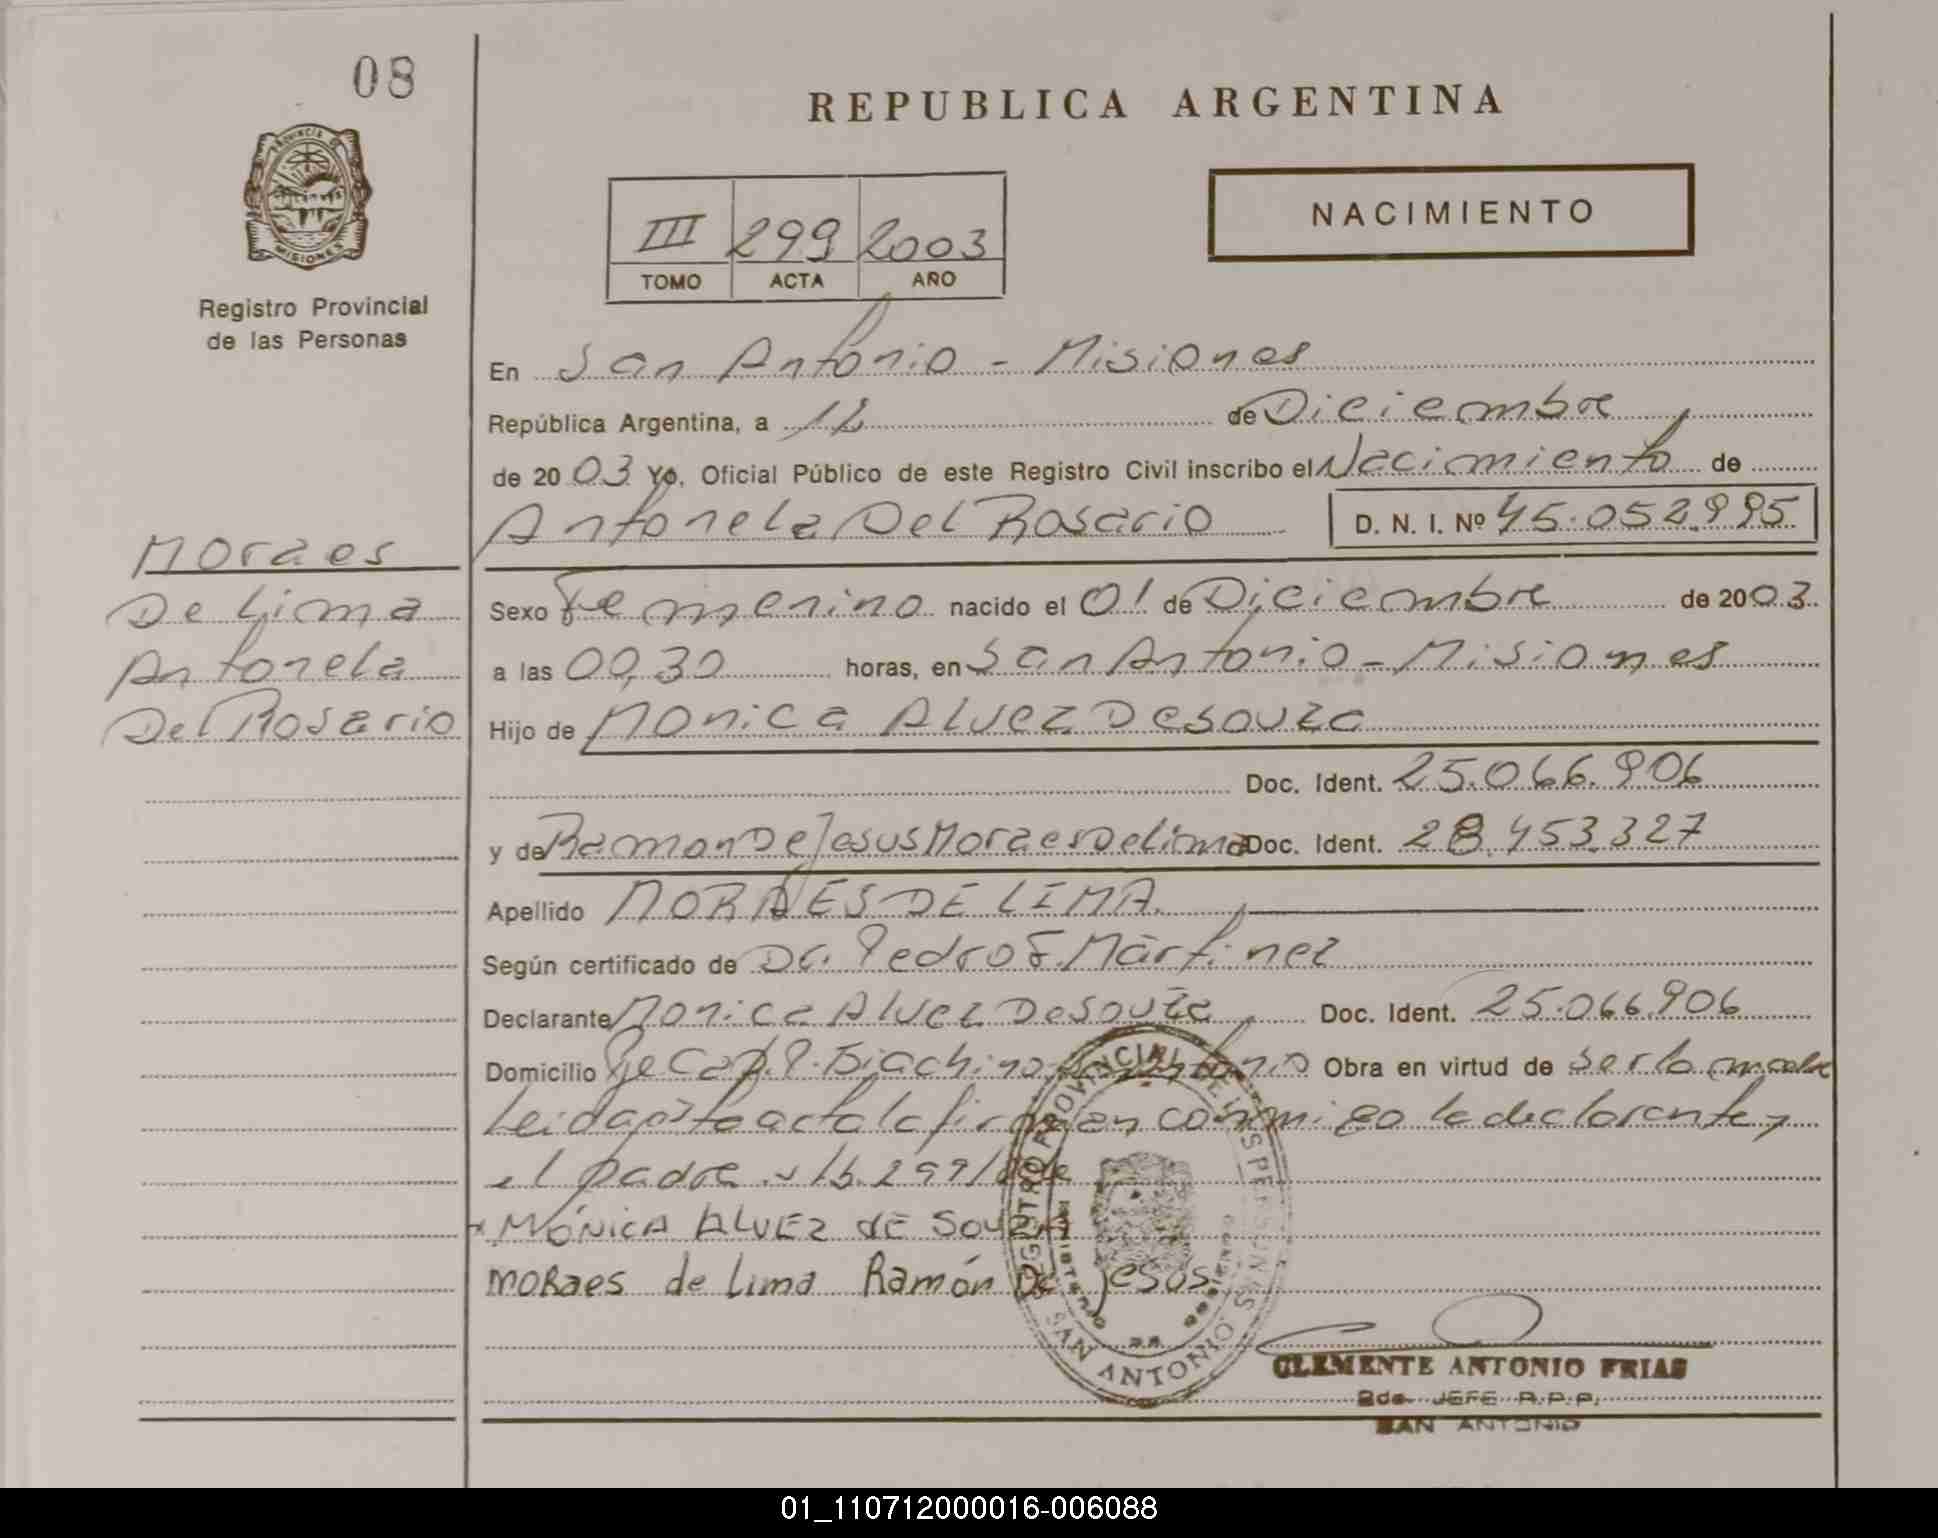 08
REPUBLICA ARGENTINA
PROVINCIA DE MISIONES
Registro Provincial
de las Personas
NACIMIENTO
III 299 2003
TOMO ACTA AÑO
En San Antonio - Misiones
República Argentina, a 12 de Diciembre
de 2003 Yo, Oficial Público de este Registro Civil inscribo el Nacimiento de
Antonela Del Rosario D. N. I. Nº 45.052.995
Moraes
De Lima
Antonela
Del Rosario
Sexo Femenino nacido el 01 de Diciembre de 2003
a las 00,30 horas, en San Antonio - Misiones
Hijo de Monica Alvez De Souza
Doc. Ident. 25.066.906
y de Ramon De Jesus Moraes De Lima Doc. Ident. 28.453.327
Apellido MORAES DE LIMA
Según certificado de Dr. Pedro F. Martinez
Declarante Monica Alvez De Souza Doc. Ident. 25.066.906
Domicilio Obra en virtud de ser la madre
Leida esta acta la firman conmigo la declarante y
el padre
x MÓNICA ALVEZ DE SOUZA
MORaes de Lima Ramón De Jesos
REGISTRO PROVINCIAL DE LAS PERSONAS
SAN ANTONIO
CLEMENTE ANTONIO FRIAS
2do. JEFE R.P.P.
SAN ANTONIO
01_110712000016-006088